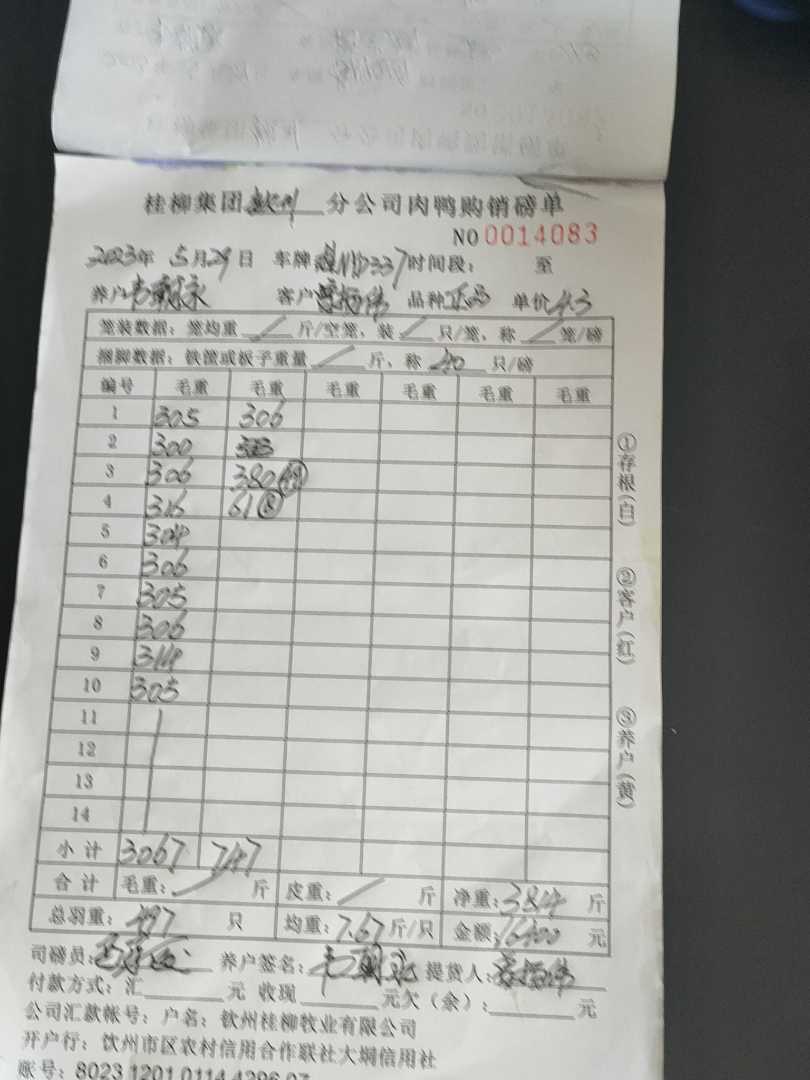 桂柳集团钦州分公司肉鸭购销磅单
NO 0014083
2023年5月29日 车牌 337 时间段: 至
养户韦朝永 客户 品种正西 单价4.3
笼装数据: 笼均重 / 斤/空笼, 装 / 只/笼, 称 / 笼/磅
捆脚数据: 铁筐或板子重量 / 斤, 称 40 只/磅
编号 毛重 毛重 毛重 毛重 毛重 毛重
1 305 306
2 300
3 306 380 49
4 316 61 8
5 304
6 306
7 305
8 306
9 314
10 305
11
12
13
14
小计 3067 747
合计 毛重: / 斤 皮重: / 斤 净重: 3814 斤
总羽重: 497 只 均重: 7.67 斤/只 金额: 16400 元
司磅员: 养户签名: 韦朝永 提货人:
付款方式: 汇 元 收现 元欠(余): 元
公司汇款帐号: 户名: 钦州桂柳牧业有限公司
开户行: 钦州市区农村信用合作联社大垌信用社
账号: 8023 1201 0114 4296 07
①存根(白) ②客户(红) ③养户(黄)